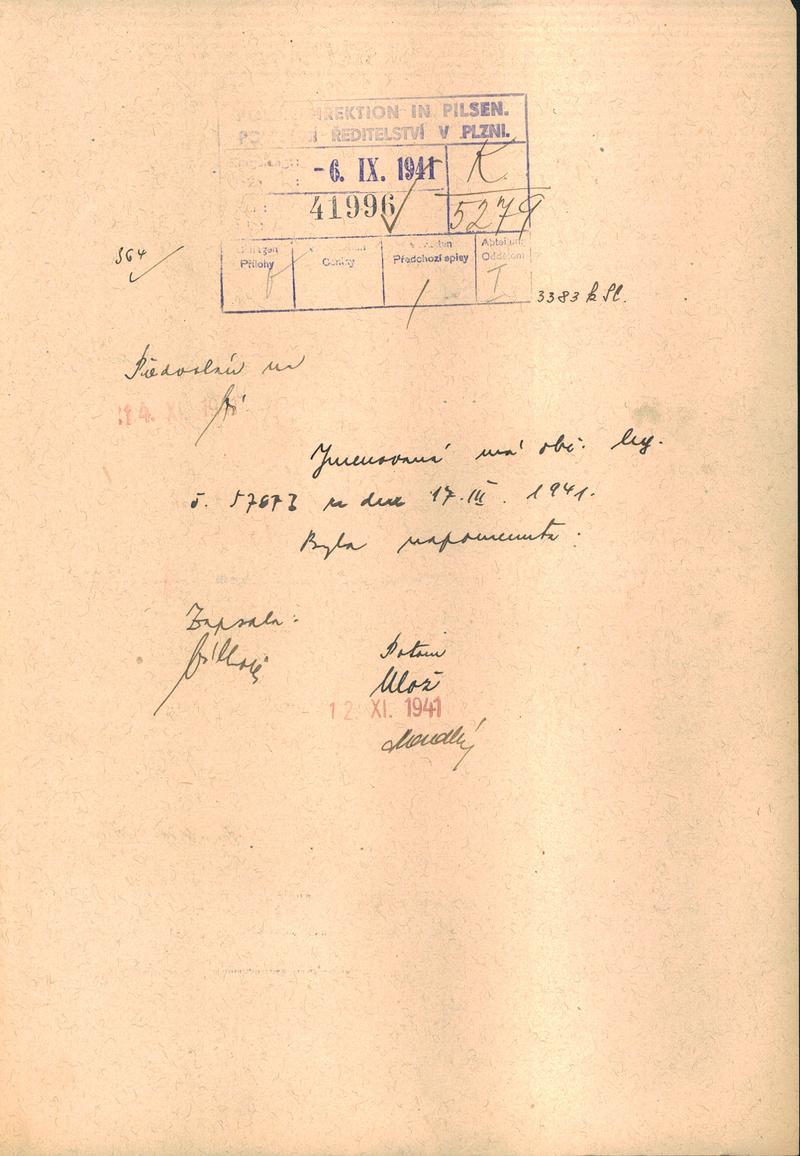 REKTION IN PILSEN.
ŘEDITELSTVÍ V PLZNI.
-6. IX. 1941 K
41996 5279
364
Přílohy Předchozí spisy Oddělení
I
3383 k Sl.
Předvolán na
Jmenovaná má obč. leg.
č. 57673 ze dne 17. III. 1941.
Byla napomenuta.
Zapsala:
Potom
Ulož
12. XI. 1941